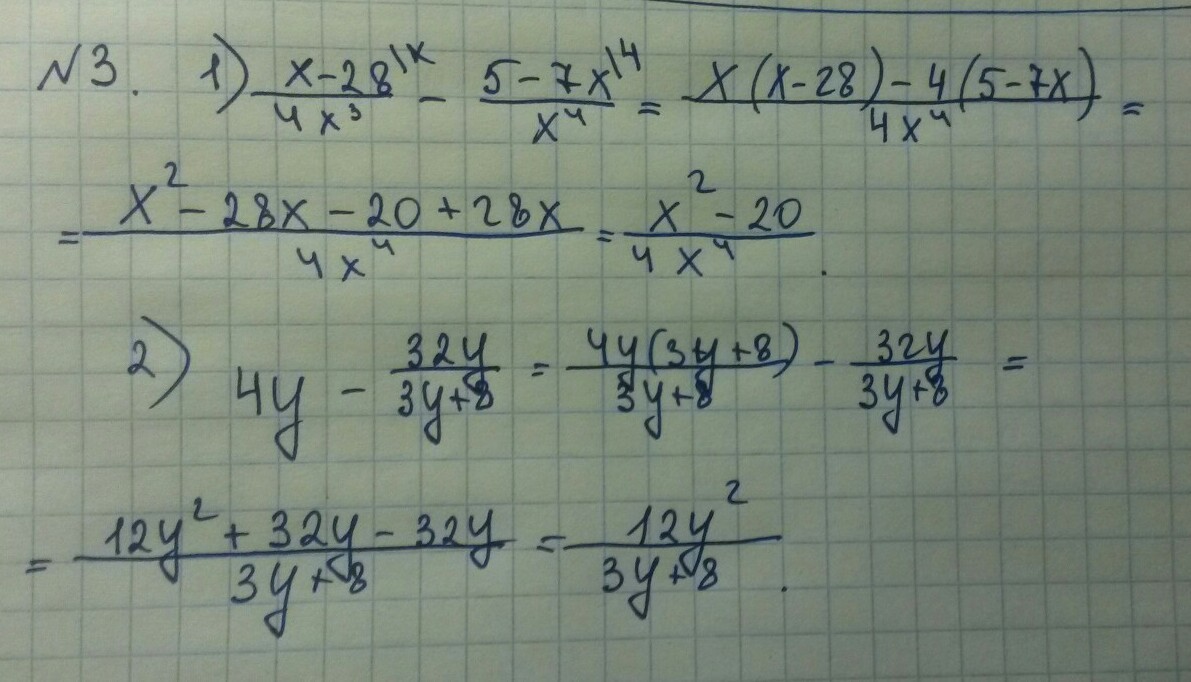 №3. 1) \frac{x-28^{\setminus x}}{4x^3} - \frac{5-7x^{\setminus 4}}{x^4} = \frac{x(x-28)-4(5-7x)}{4x^4} =
= \frac{x^2-28x-20+28x}{4x^4} = \frac{x^2-20}{4x^4}.
2) 4y - \frac{32y}{3y+8} = \frac{4y(3y+8)}{3y+8} - \frac{32y}{3y+8} =
= \frac{12y^2+32y-32y}{3y+8} = \frac{12y^2}{3y+8}.